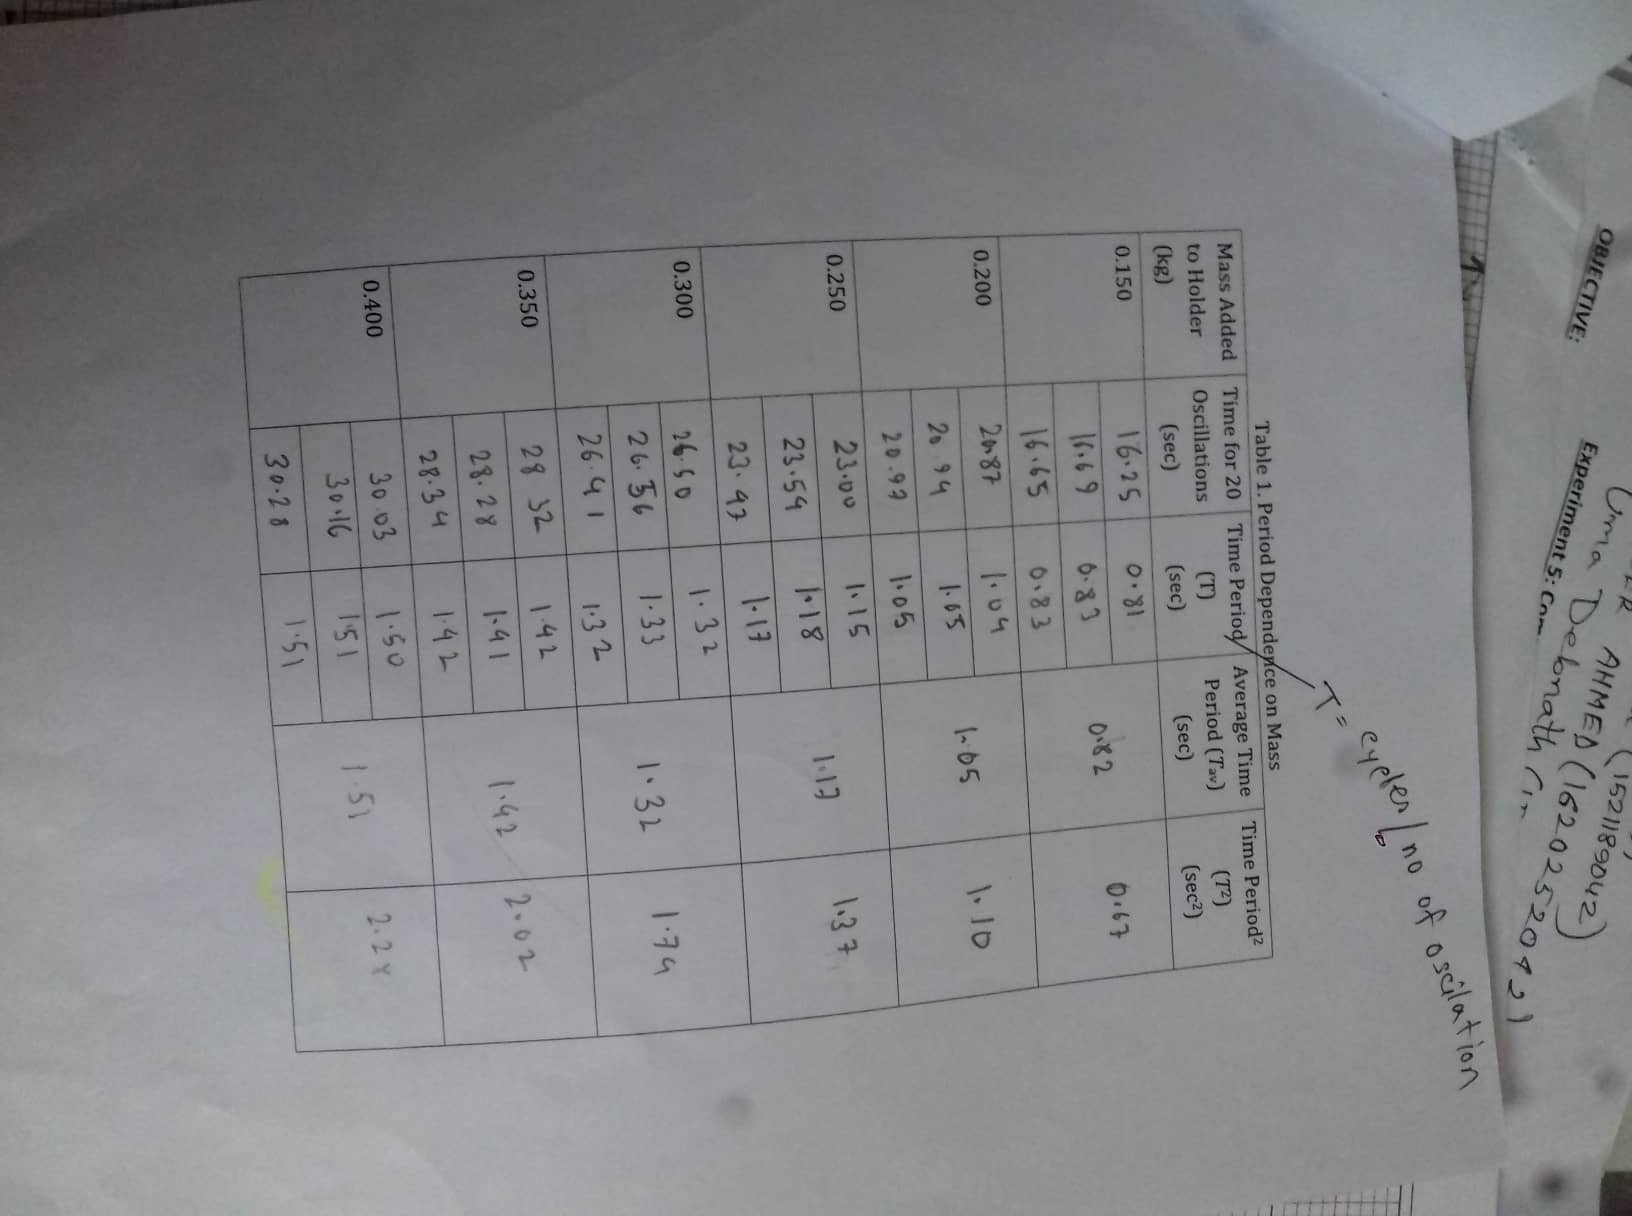 Uma Debonath
AHMED (1620252042)
(1521189042)
OBJECTIVE:
Experiment 5:
T = cycles/no of oscilation
Table 1. Period Dependence on Mass
Mass Added to Holder (kg) Time for 20 Oscillations (sec) Time Period (T) (sec) Average Time Period (Tav) (sec) Time Period² (T²) (sec²)
0.150 16.25 0.81 0.82 0.67
16.69 0.83
16.65 0.83
0.200 20.87 1.04 1.05 1.10
20.94 1.05
20.97 1.05
0.250 23.00 1.15 1.17 1.37
23.54 1.18
23.47 1.17
0.300 26.50 1.32 1.32 1.74
26.56 1.33
26.41 1.32
0.350 28 32 1.42 1.42 2.02
28.28 1.41
28.34 1.42
0.400 30.03 1.50 1.51 2.28
30.16 1.51
30.28 1.51